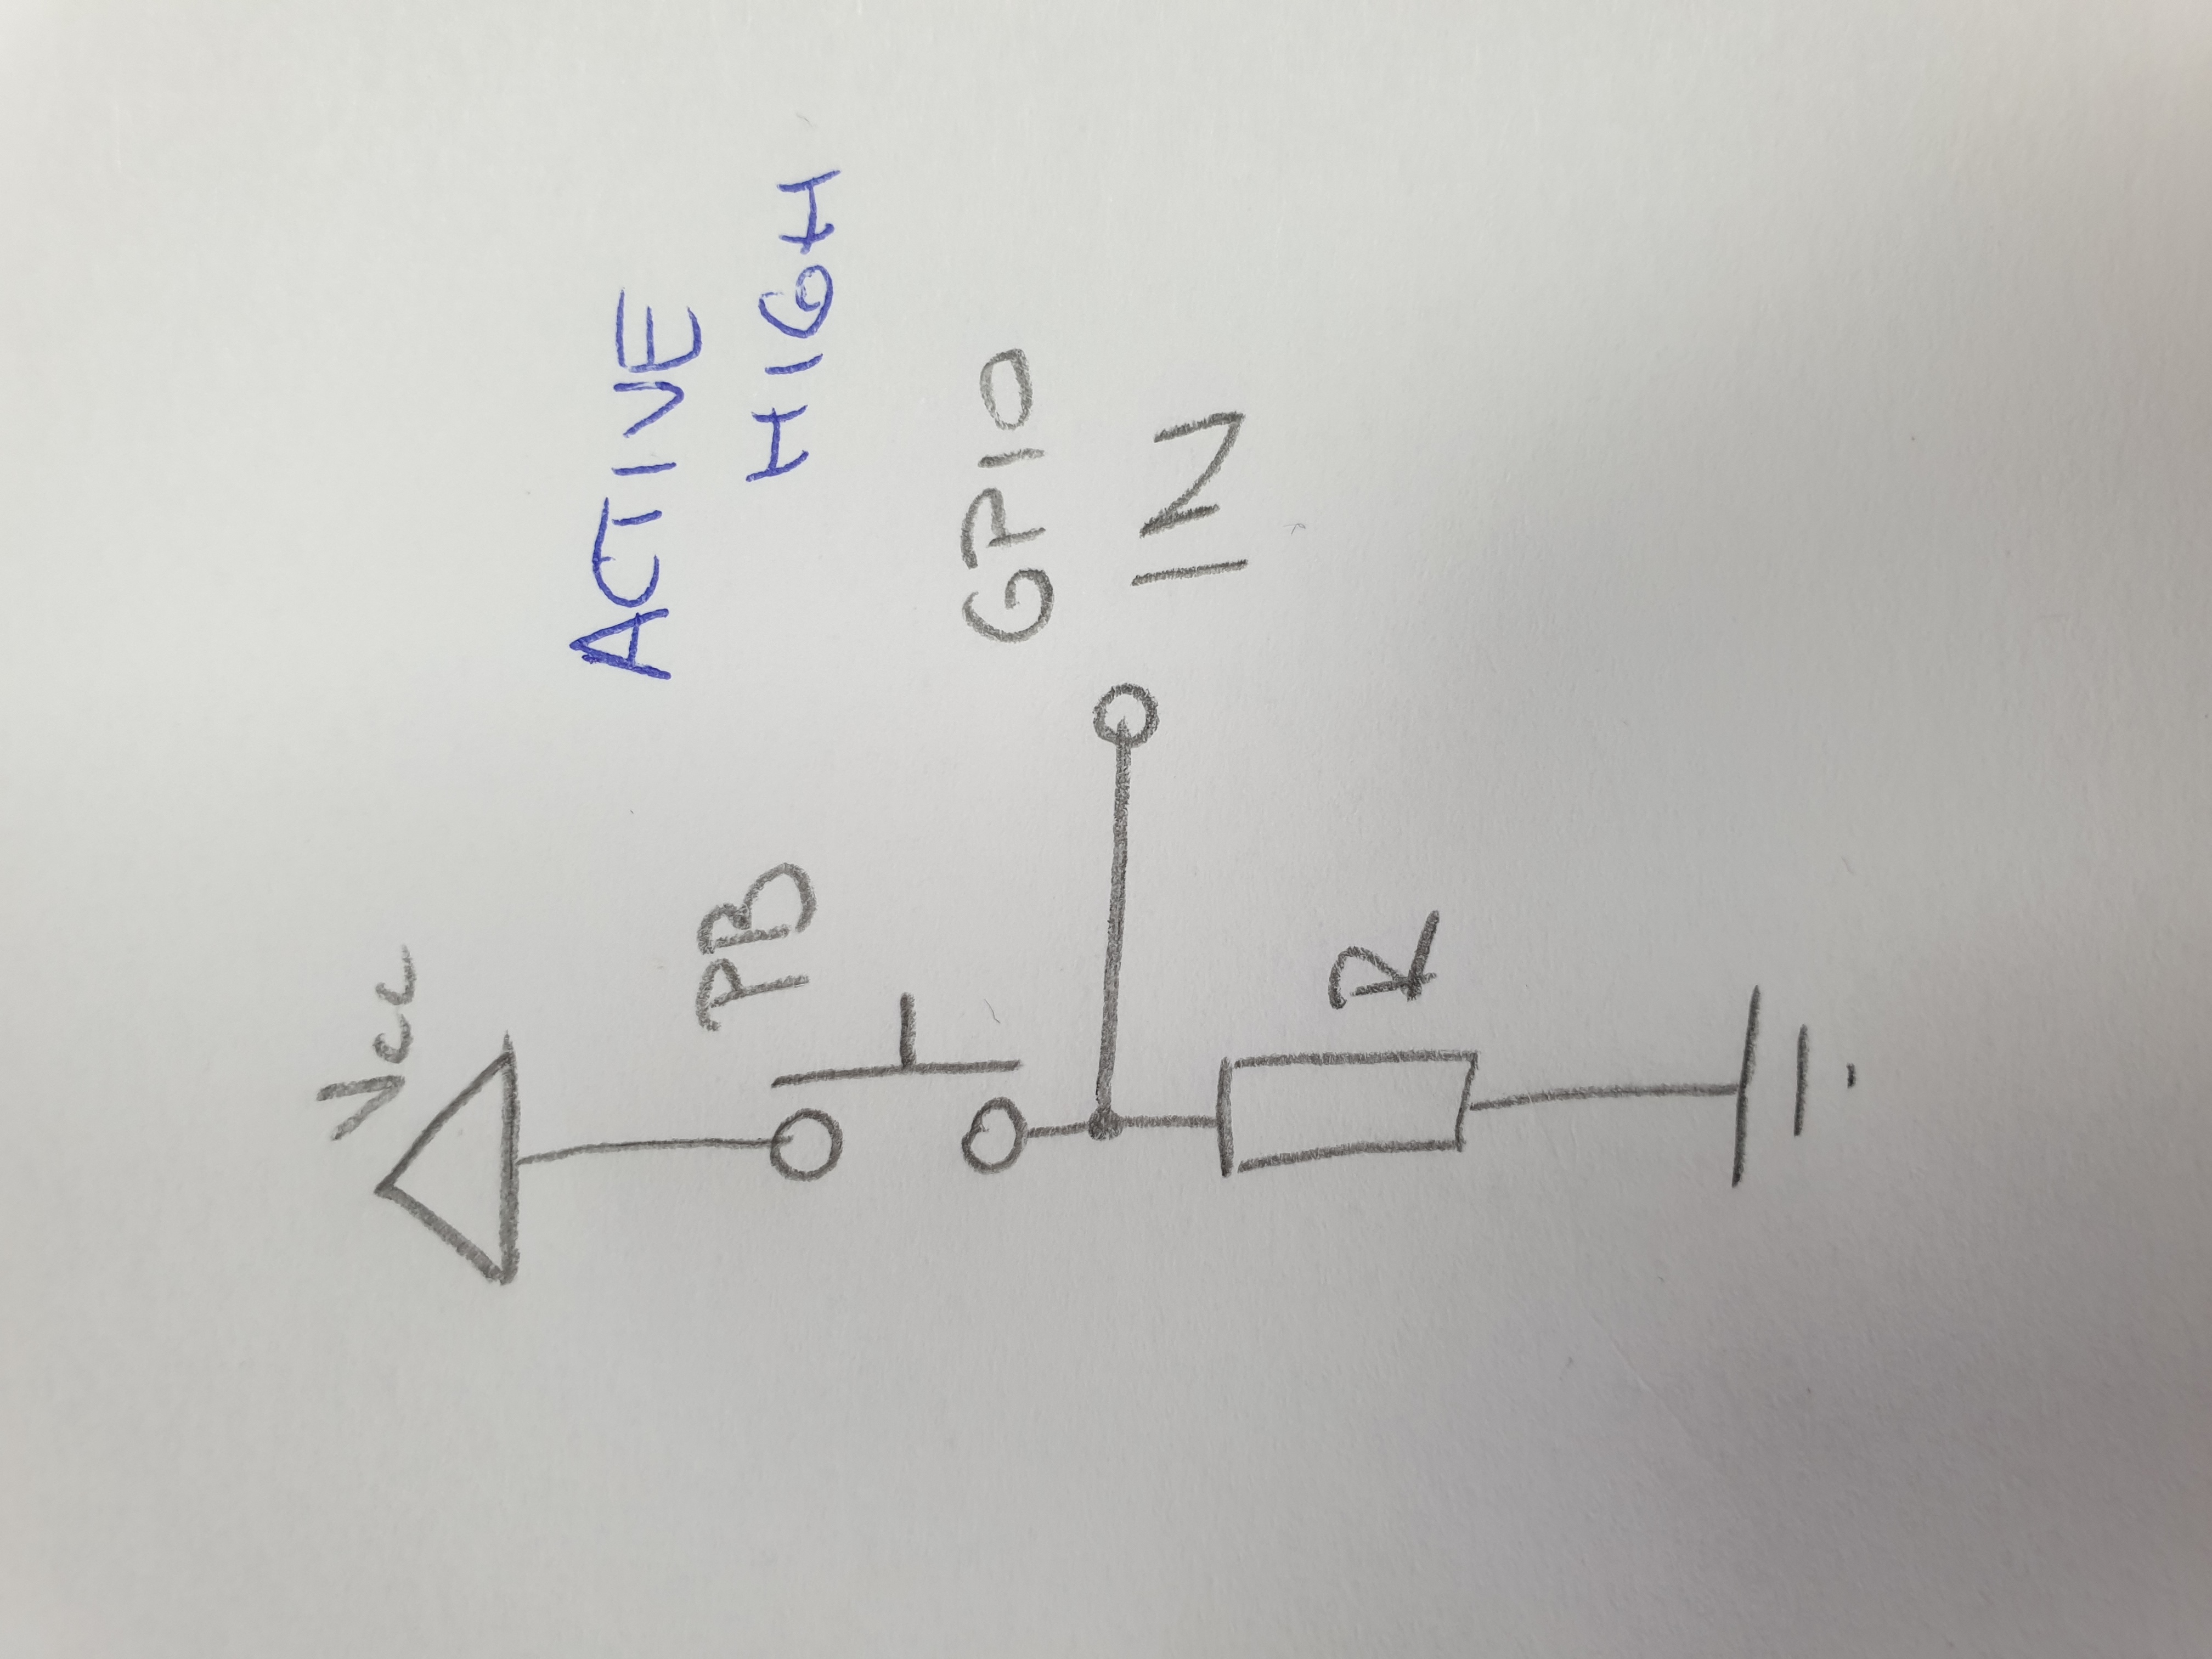 Vcc
ACTIVE
HIGH
PB
GPIO
IN
R